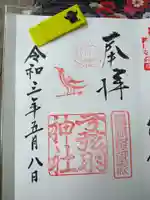 奉拝
弓弦羽
神社
令和三年五月八日